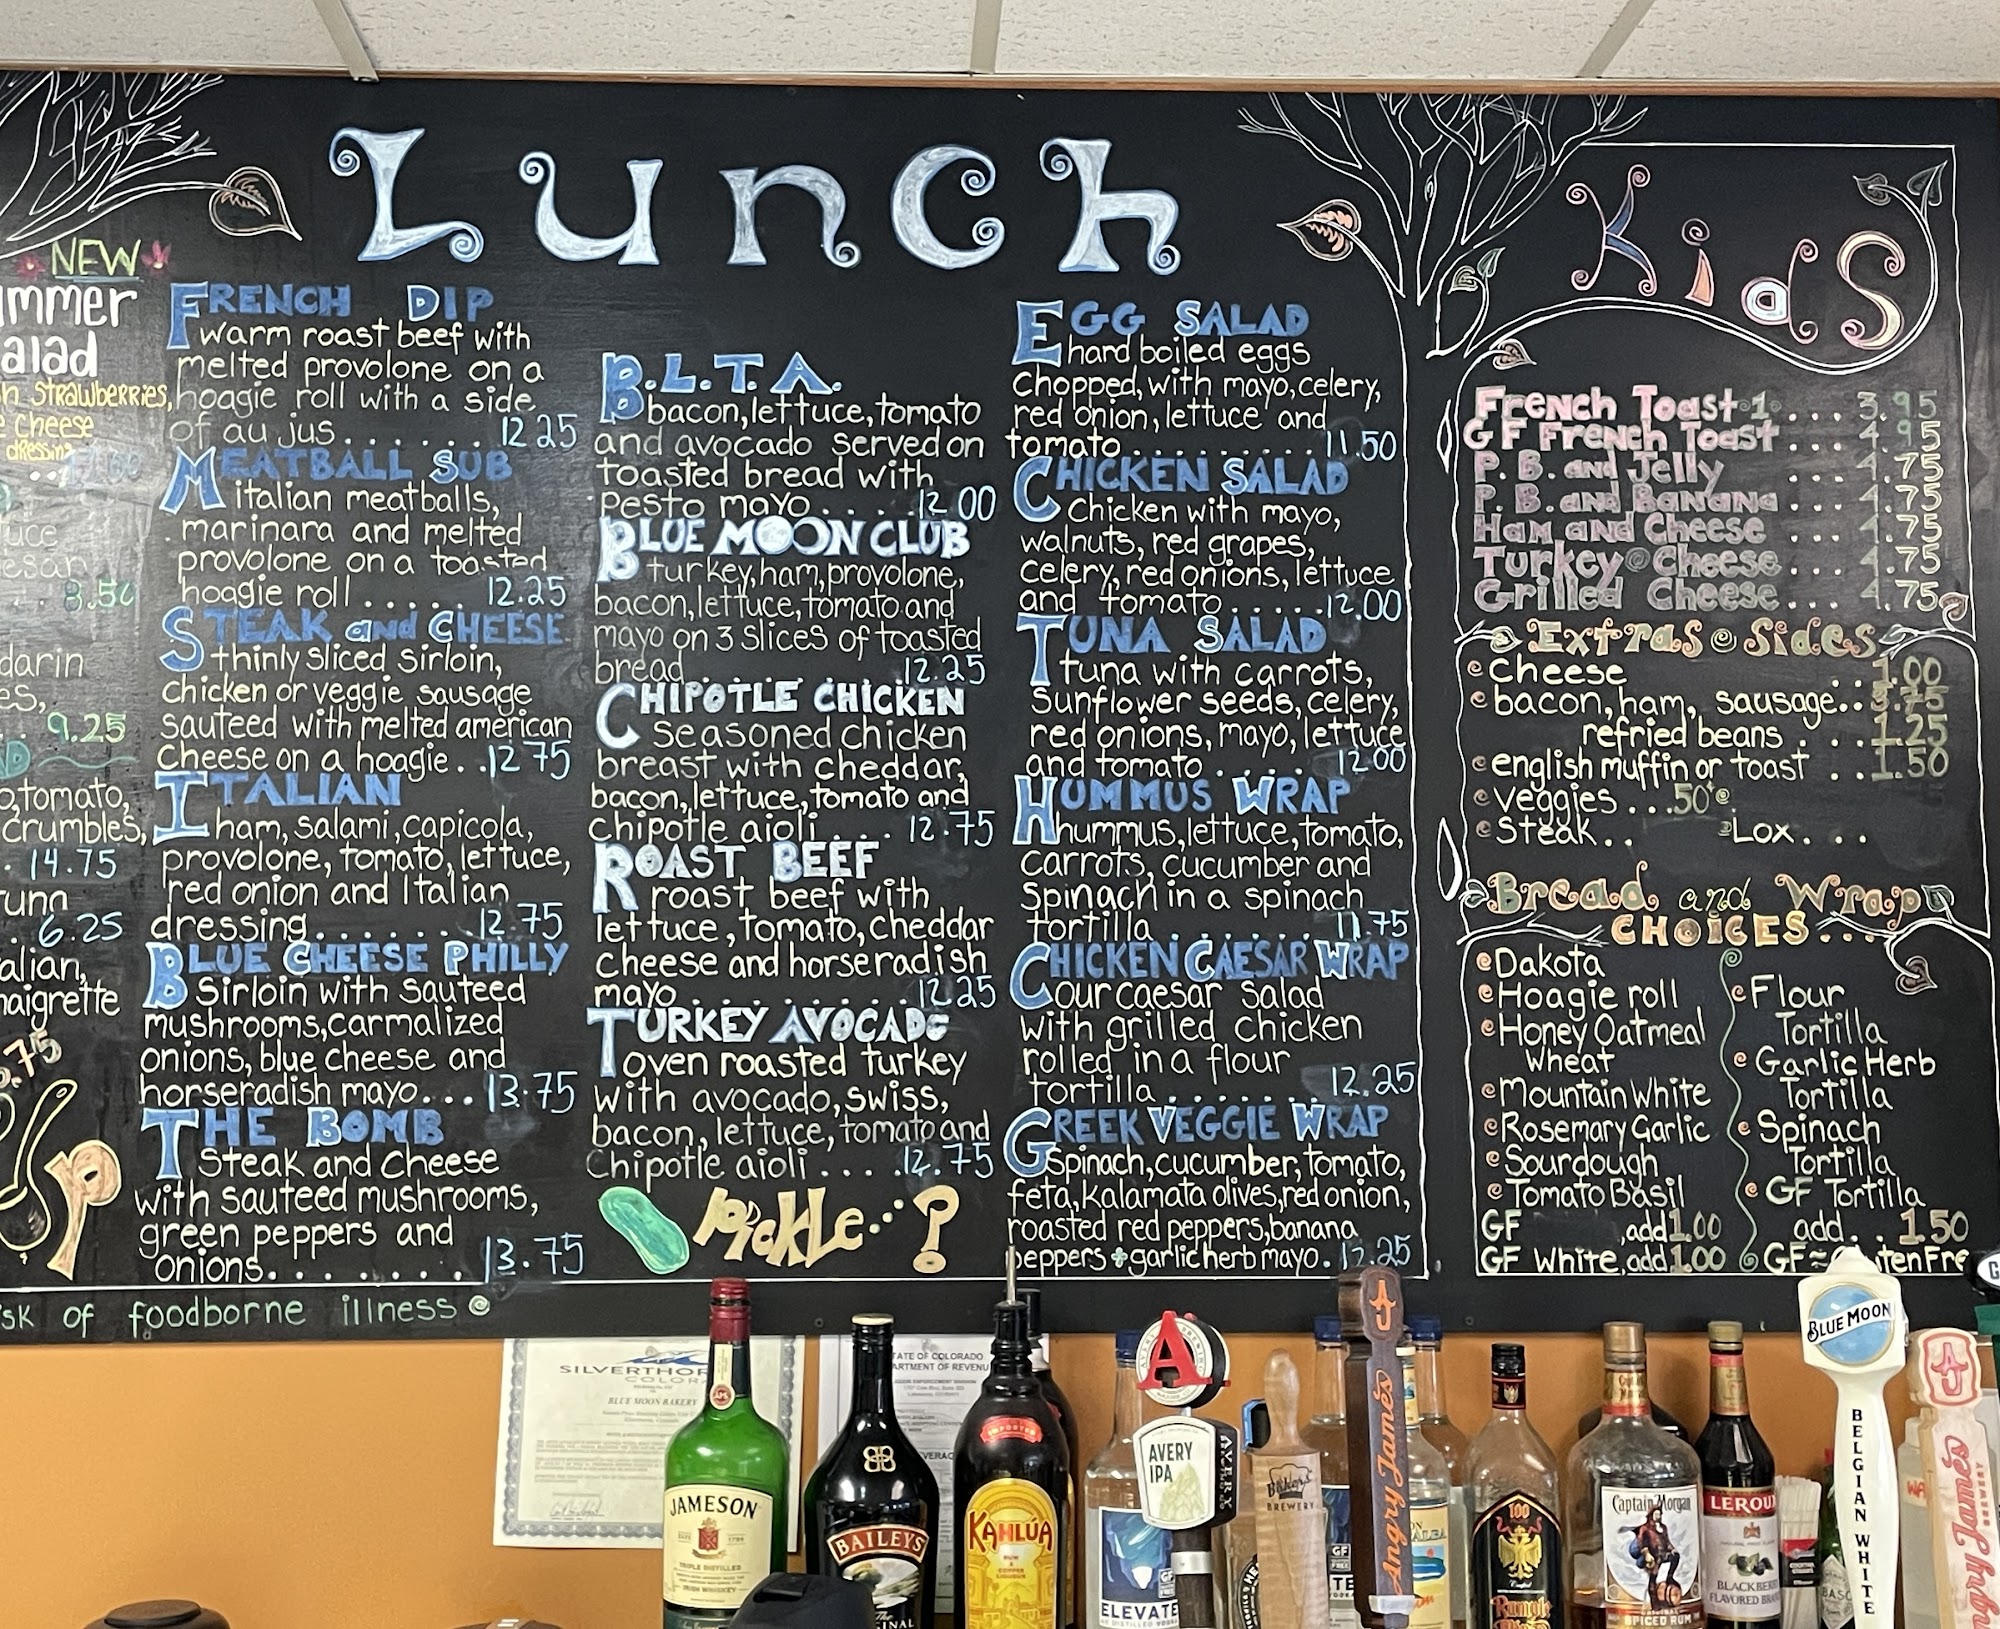 Lunch
NEW
mmer
alad
h strawberries,
e cheese
dressing
8.50
darin
es,
9.25
o, tomato,
crumbles,
14.75
6.25
alian,
naigrette
FRENCH DIP
warm roast beef with
melted provolone on a
hoagie roll with a side
of au jus....... 12.25
MEATBALL SUB
italian meatballs,
marinara and melted
provolone on a toasted
hoagie roll ..... 12.25
STEAK and CHEESE
thinly sliced sirloin,
chicken or veggie sausage
sauteed with melted american
cheese on a hoagie...12.75
ITALIAN
ham, salami, capicola,
provolone, tomato, lettuce,
red onion and Italian
dressing....... 12.75
BLUE CHEESE PHILLY
Sirloin with sauteed
mushrooms, carmalized
onions, blue cheese and
horseradish mayo... 13.75
THE BOMB
Steak and cheese
with sauteed mushrooms,
green peppers and
onions........ 13.75
B.L.T.A.
bacon, lettuce, tomato
and avocado served on
toasted bread with
pesto mayo.....12.00
BLUE MOON CLUB
turkey, ham, provolone,
bacon, lettuce, tomato and
mayo on 3 slices of toasted
bread....... 12.25
CHIPOTLE CHICKEN
Seasoned chicken
breast with cheddar,
bacon, lettuce, tomato and
chipotle aioli.... 12.75
ROAST BEEF
roast beef with
lettuce, tomato, cheddar
cheese and horseradish
mayo......... 12.25
TURKEY AVOCADO
oven roasted turkey
with avocado, swiss,
bacon, lettuce, tomato and
Chipotle aioli.....12.75
Pickle...?
EGG SALAD
hard boiled eggs
chopped, with mayo, celery,
red onion, lettuce and
tomato.........11.50
CHICKEN SALAD
Chicken with mayo,
walnuts, red grapes,
celery, red onions, lettuce
and tomato.....12.00
TUNA SALAD
tuna with carrots,
sunflower seeds, celery,
red onions, mayo, lettuce
and tomato...... 12.00
HUMMUS WRAP
hummus, lettuce, tomato,
carrots, cucumber and
spinach in a spinach
tortilla........11.75
CHICKEN CAESAR WRAP
our caesar salad
with grilled chicken
rolled in a flour
tortilla....... 12.25
GREEK VEGGIE WRAP
spinach, cucumber, tomato,
feta, kalamata olives, red onion,
roasted red peppers, banana
peppers + garlic herb mayo. 12.25
Kids
French Toast 1... 3.95
GF French Toast... 4.95
P.B. and Jelly ... 4.75
P.B. and Banana ... 4.75
Ham and Cheese ... 4.75
Turkey Cheese... 4.75
Grilled Cheese... 4.75
Extras Sides
cheese ..1.00
bacon, ham, sausage..3.75
refried beans ...1.25
english muffin or toast ..1.50
veggies...50¢
steak.. Lox....
Bread and Wrap
CHOICES...
Dakota
Hoagie roll
Honey Oatmeal
Wheat
Mountain White
Rosemary Garlic
Sourdough
Tomato Basil
GF ,add 1.00
GF White, add 1.00
Flour
Tortilla
Garlic Herb
Tortilla
Spinach
Tortilla
GF Tortilla
add...1.50
GF = ten Fre
isk of foodborne illness
SILVERTHOR
COLOR
BLUE MOON BAKERY
TATE OF COLORADO
ARTMENT OF REVENU
JAMESON
TRIPLE DISTILLED
IRISH WHISKEY
BAILEYS
The
ORIGINAL
IMPORTED
KAHLÚA
RUM &
COFFEE
LIQUEUR
A
AVERY
IPA
AVERY
ELEVATE
Bakers'
BREWERY
Angry James
100
Rumple
Captain Morgan
ORIGINAL
SPICED RUM
LEROUX
BLACKBERRY
FLAVORED BRAN
BLUE MOON
BELGIAN WHITE
Angry James
BREWERY